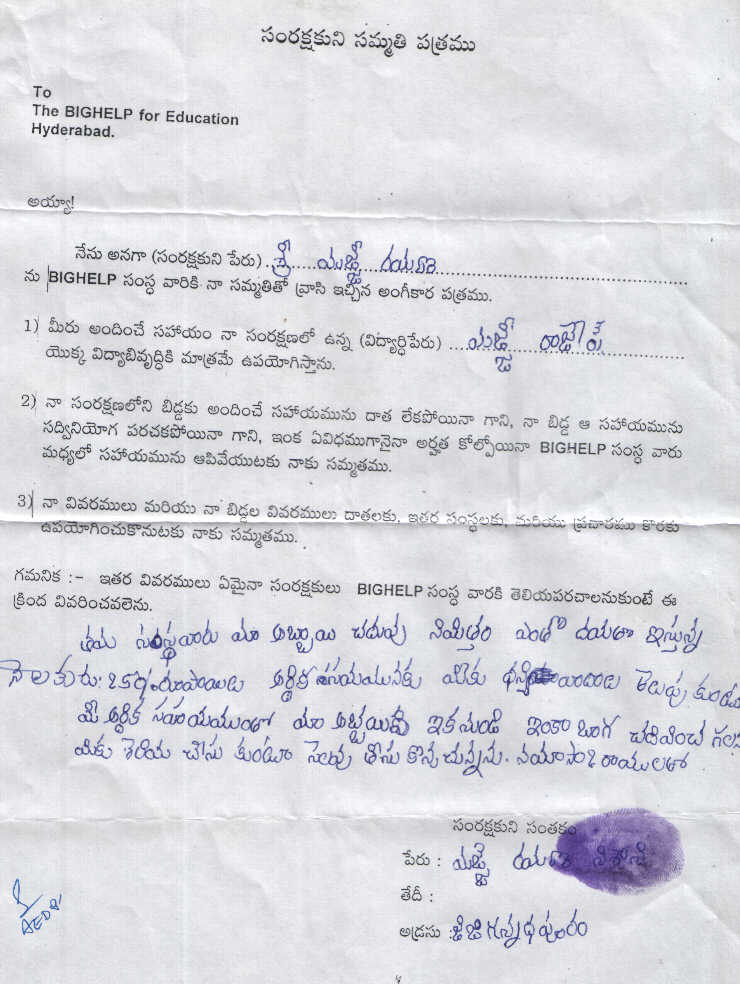 సంరక్షకుని సమ్మతి పత్రము
To
The BIGHELP for Education
Hyderabad.
అయ్యా!
నేను అనగా (సంరక్షకుని పేరు) శ్రీ మజ్జి రమణ
ను BIGHELP సంస్ధ వారికి నా సమ్మతితో వ్రాసి ఇచ్చిన అంగీకార పత్రము.
1) మీరు అందించే సహాయం నా సంరక్షణలో ఉన్న (విద్యార్ధిపేరు) మజ్జి
యొక్క విద్యాబివృద్ధికి మాత్రమే ఉపయోగిస్తాను.
2) నా సంరక్షణలోని బిడ్డకు అందించే సహాయమును దాత లేకపోయినా గాని, నా బిడ్డ ఆ సహాయమును
సద్వినియోగ పరచకపోయినా గాని, ఇంక ఏవిధముగానైనా అర్హత కోల్పోయినా BIGHELP సంస్ధ వారు
మధ్యలో సహాయమును ఆపివేయుటకు నాకు సమ్మతము.
3) నా వివరములు మరియు నా బిడ్డల వివరములు దాతలకు, ఇతర సంస్ధలకు, మరియు ప్రచారము కొరకు
ఉపయోగించుకొనుటకు నాకు సమ్మతము.
గమనిక :- ఇతర వివరములు ఏమైనా సంరక్షకులు BIGHELP సంస్ధ వారకి తెలియపరచాలనుకుంటే ఈ
క్రింద వివరించవలెను.
తమ సంస్థవారు మా అబ్బాయి చదువు నిమిత్తం ఎంతో దయతో ఇస్తున్న
ఆర్థిక మీకు తెలుపు కుంటు
మీ ఆర్థిక సహాయముతో మా అబ్బయిని ఇకనుండి ఇంకా బాగ చదివించ గలను
మీకు తెలియ చేసు కుంటూ సెలవు తీసు కొన్న చున్నను.
సంరక్షకుని సంతకం
పేరు : మజ్జి రమణ నిశాని
తేదీ :
అడ్రసు : జి జగన్నధపురం